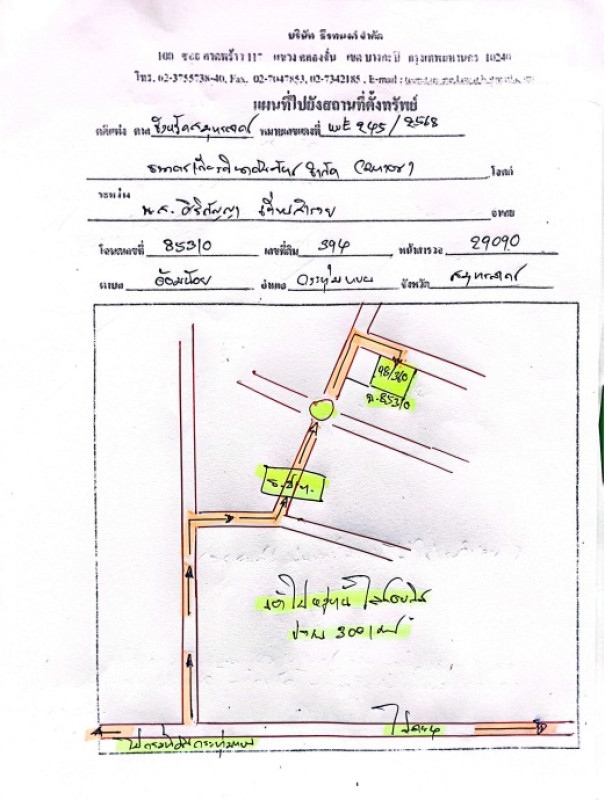 บริษัท ธีรทนต์ จำกัด
100 ซอย ลาดพร้าว 117 แขวง คลองจั่น เขต บางกะปิ กรุงเทพมหานคร 10240
โทร. 02-3755738-40, Fax. 02-7047853, 02-7342185 , E-mail :
แผนที่ไปยังสถานที่ตั้งทรัพย์
คดีแพ่ง ศาล จังหวัดสมุทรสาคร หมายเลขแดงที่ ผบE 245 / 2568
ธนาคารเกียรตินาคินภัทร จำกัด (มหาชน) โจทก์
ระหว่าง
น.ส. สิริกัญญา จำเลย
โฉนดเลขที่ 85310 เลขที่ดิน 394 หน้าสำรวจ 29090
ตำบล อ้อมน้อย อำเภอ กระทุ่มแบน จังหวัด สมุทรสาคร
98/310
ฉ.85310
เข้าไป
ประมาณ 300 เมตร